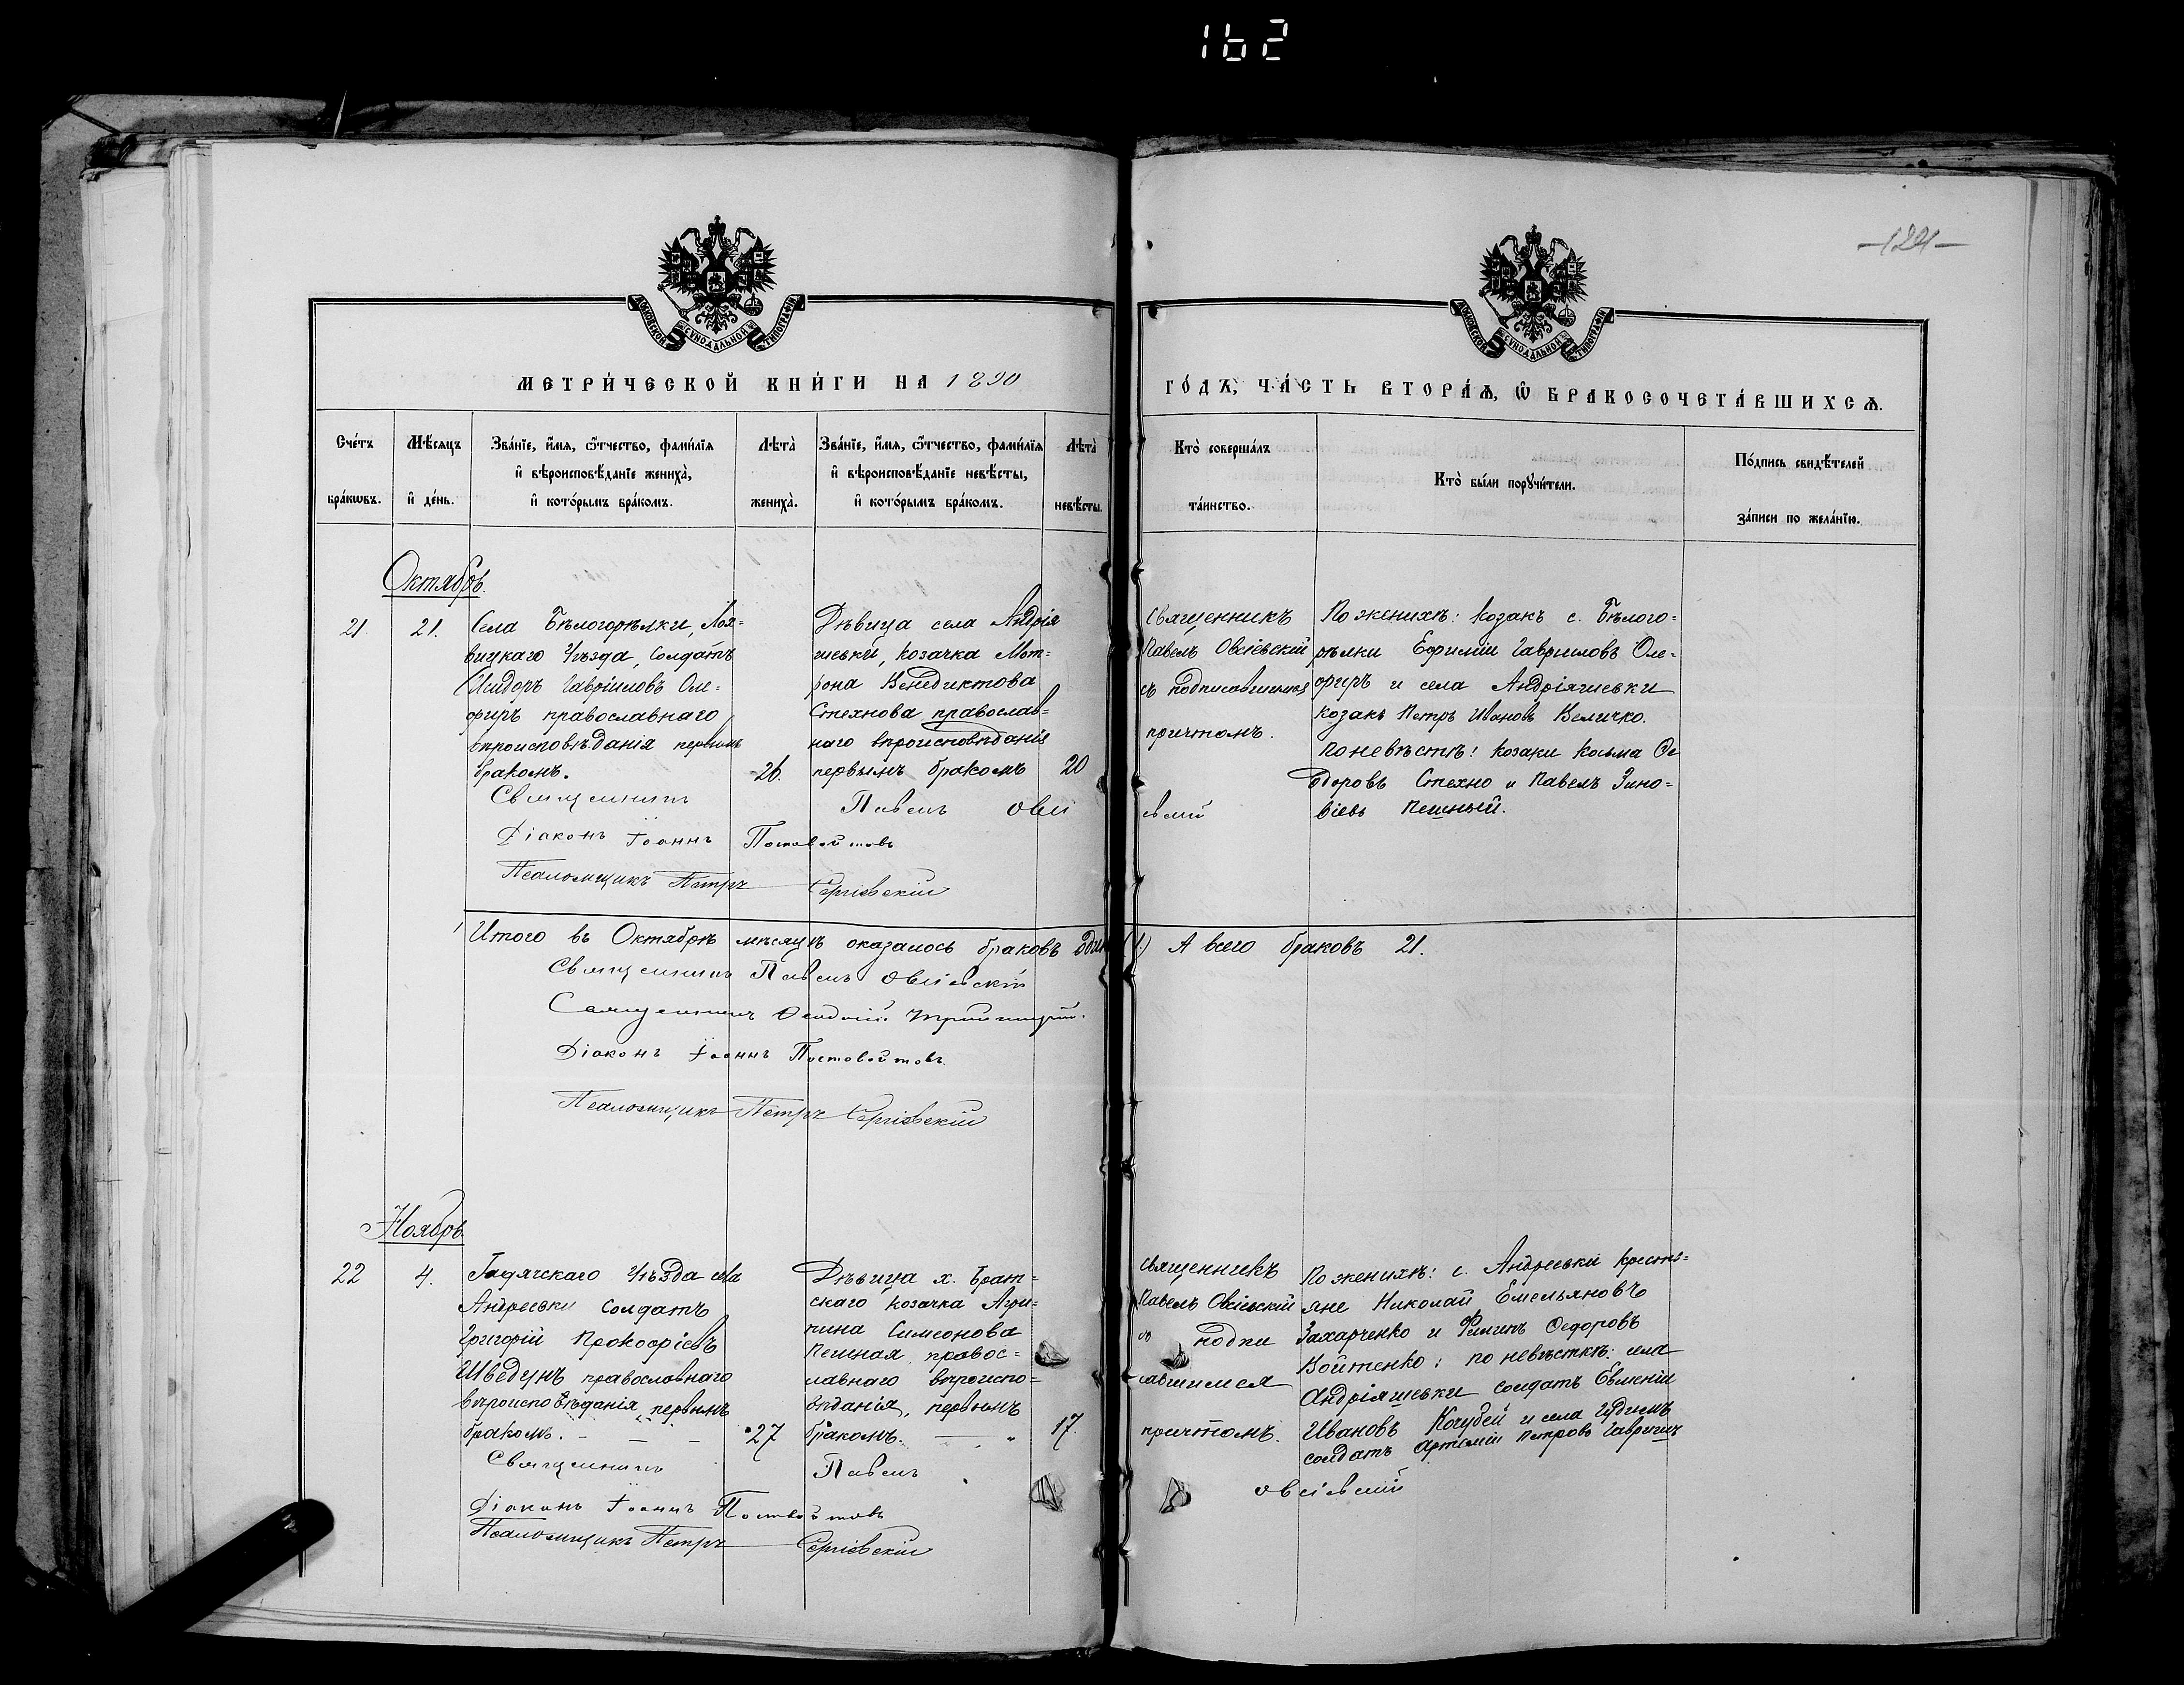 162
-124-
МОСКОВСКОЙ СѴНОДАЛЬНОЙ ТИПОГРАФІИ
МОСКОВСКОЙ СѴНОДАЛЬНОЙ ТИПОГРАФІИ
МЕТРИ́ЧЕСКОЙ КНИ́ГИ НА 1890
ГО́ДЪ, ЧА́СТЬ ВТОРА́Ѧ, Ѽ БРАКОСОЧЕТА́ВШИХСѦ.
Сче́тъ
бра́кѡвъ.
Мѣ́сяцъ
и҆ де́нь.
Зва́нїе, и҆́мѧ, ѻ҆́тчество, фами́лїѧ
и҆ вѣроисповѣ́данїе жениха̀,
и҆ кото́рымъ бра́комъ.
Лѣта̀
жениха̀.
Зва́нїе, и҆́мѧ, ѻ҆́тчество, фами́лїѧ
и҆ вѣроисповѣ́данїе невѣ́сты,
и҆ кото́рымъ бра́комъ.
Лѣта̀
невѣ́сты.
Кто̀ соверша́лъ
та́инство.
Кто̀ бы́ли порꙋчи́тели.
По́дпись свидѣ́телей
за́писи по жела́нїю.
Октябрь.
21.
21.
Села Бѣлогорѣлки, Лох=
вицкаго Уѣзда, Солдатъ
Исидоръ Гавріиловъ Оле=
фиръ православнаго
вѣроисповѣданія первымъ
бракомъ.
26.
Дѣвица села Андрія
шевки, козачка Мот=
рона Венедиктова
Стехнова православ=
наго вѣроисповѣданія
первымъ бракомъ
20
Священникъ
Павелъ Овсіевскій
съ подписавшимся
причтомъ.
По женихѣ: козакъ с. Бѣлого=
рѣлки Ефимій Гавриловъ Оле=
фиръ и села Андріяшевки
козакъ Петръ Ивановъ Величко.
По невѣстѣ: козаки Косьма Ѳе
одоровъ Стехно и Павелъ Зино=
віевъ Пешный.
Священникъ Павелъ Овсіевскій
Діаконъ Іоаннъ Постовойтовъ
Псаломщикъ Петръ Сергіевскій
Итого въ Октябрѣ мѣсяцѣ оказалось браковъ одинъ (1.) А всего браковъ 21.
Священникъ Павелъ Овсіевскій
Священникъ
Діаконъ Іоаннъ Постовойтовъ.
Псаломщикъ Петръ Сергіевскій
Ноябрь.
22
4.
Гадячскаго Уѣзда села
Андреевки солдатъ
Григорій Прокофіевъ
Шведунъ православнаго
вѣроисповѣданія первымъ
бракомъ. - - -
27
Дѣвица х. Брат=
скаго козачка Агри=
пина Симеонова
Пешная, правос=
лавнаго вѣроиспо=
вѣданія, первымъ
бракомъ.
17.
Священникъ
Павелъ Овсіевскій
съ подпи
савшимся
причтомъ.
По женихѣ: с. Андреевки кресть=
яне Николай Емельяновъ
Захарченко и Филипъ Ѳедоровъ
Войтенко; по невѣсткѣ: села
Андріяшевки солдатъ Евмений
Ивановъ Кочубей и села
солдатъ Артемій Петровъ
Священникъ Павелъ Овсіевскій
Діаконъ Іоаннъ Постовойтовъ
Псаломщикъ Петръ Сергіевскій